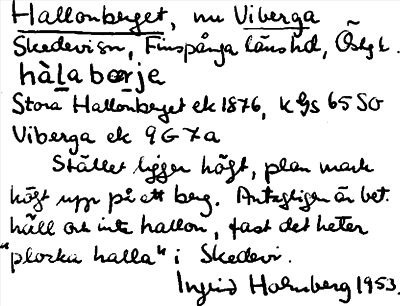 Hallonberget, nu Viberga
Skedevi sn, Finspånga läns hd, Östgl.
hàlabærje
Stora Hallonberget ek 1876, k Gs 65 SO
Viberga ek 9G7a
Stället ligger högt, plan mark
högt upp på ett berg. Antagligen är bet.
häll och inte hallon, fast det heter
"plocka halla" i Skedevi.
Ingrid Holmberg 1953.